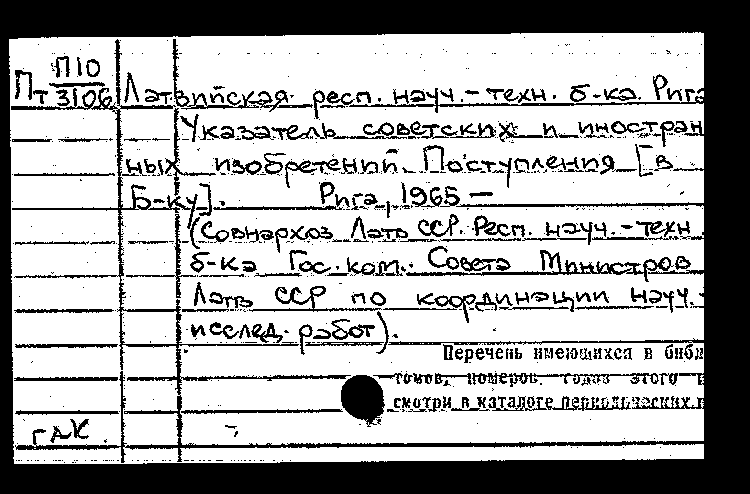 П10
Пт 3106 Латвийская респ. науч.-техн. б-ка. Рига
Указатель советских и иностран
ных изобретений. Поступления [в
Б-ку]. Рига, 1965 —
(Совнархоз Латв ССР. Респ. науч.-техн.
б-ка Гос. ком. Совета Министров
Латв ССР по координации науч.-
исслед. работ).
Перечень имеющихся в библ
томов, номеров, годов этого
смотри в каталоге периодических
ГАК.